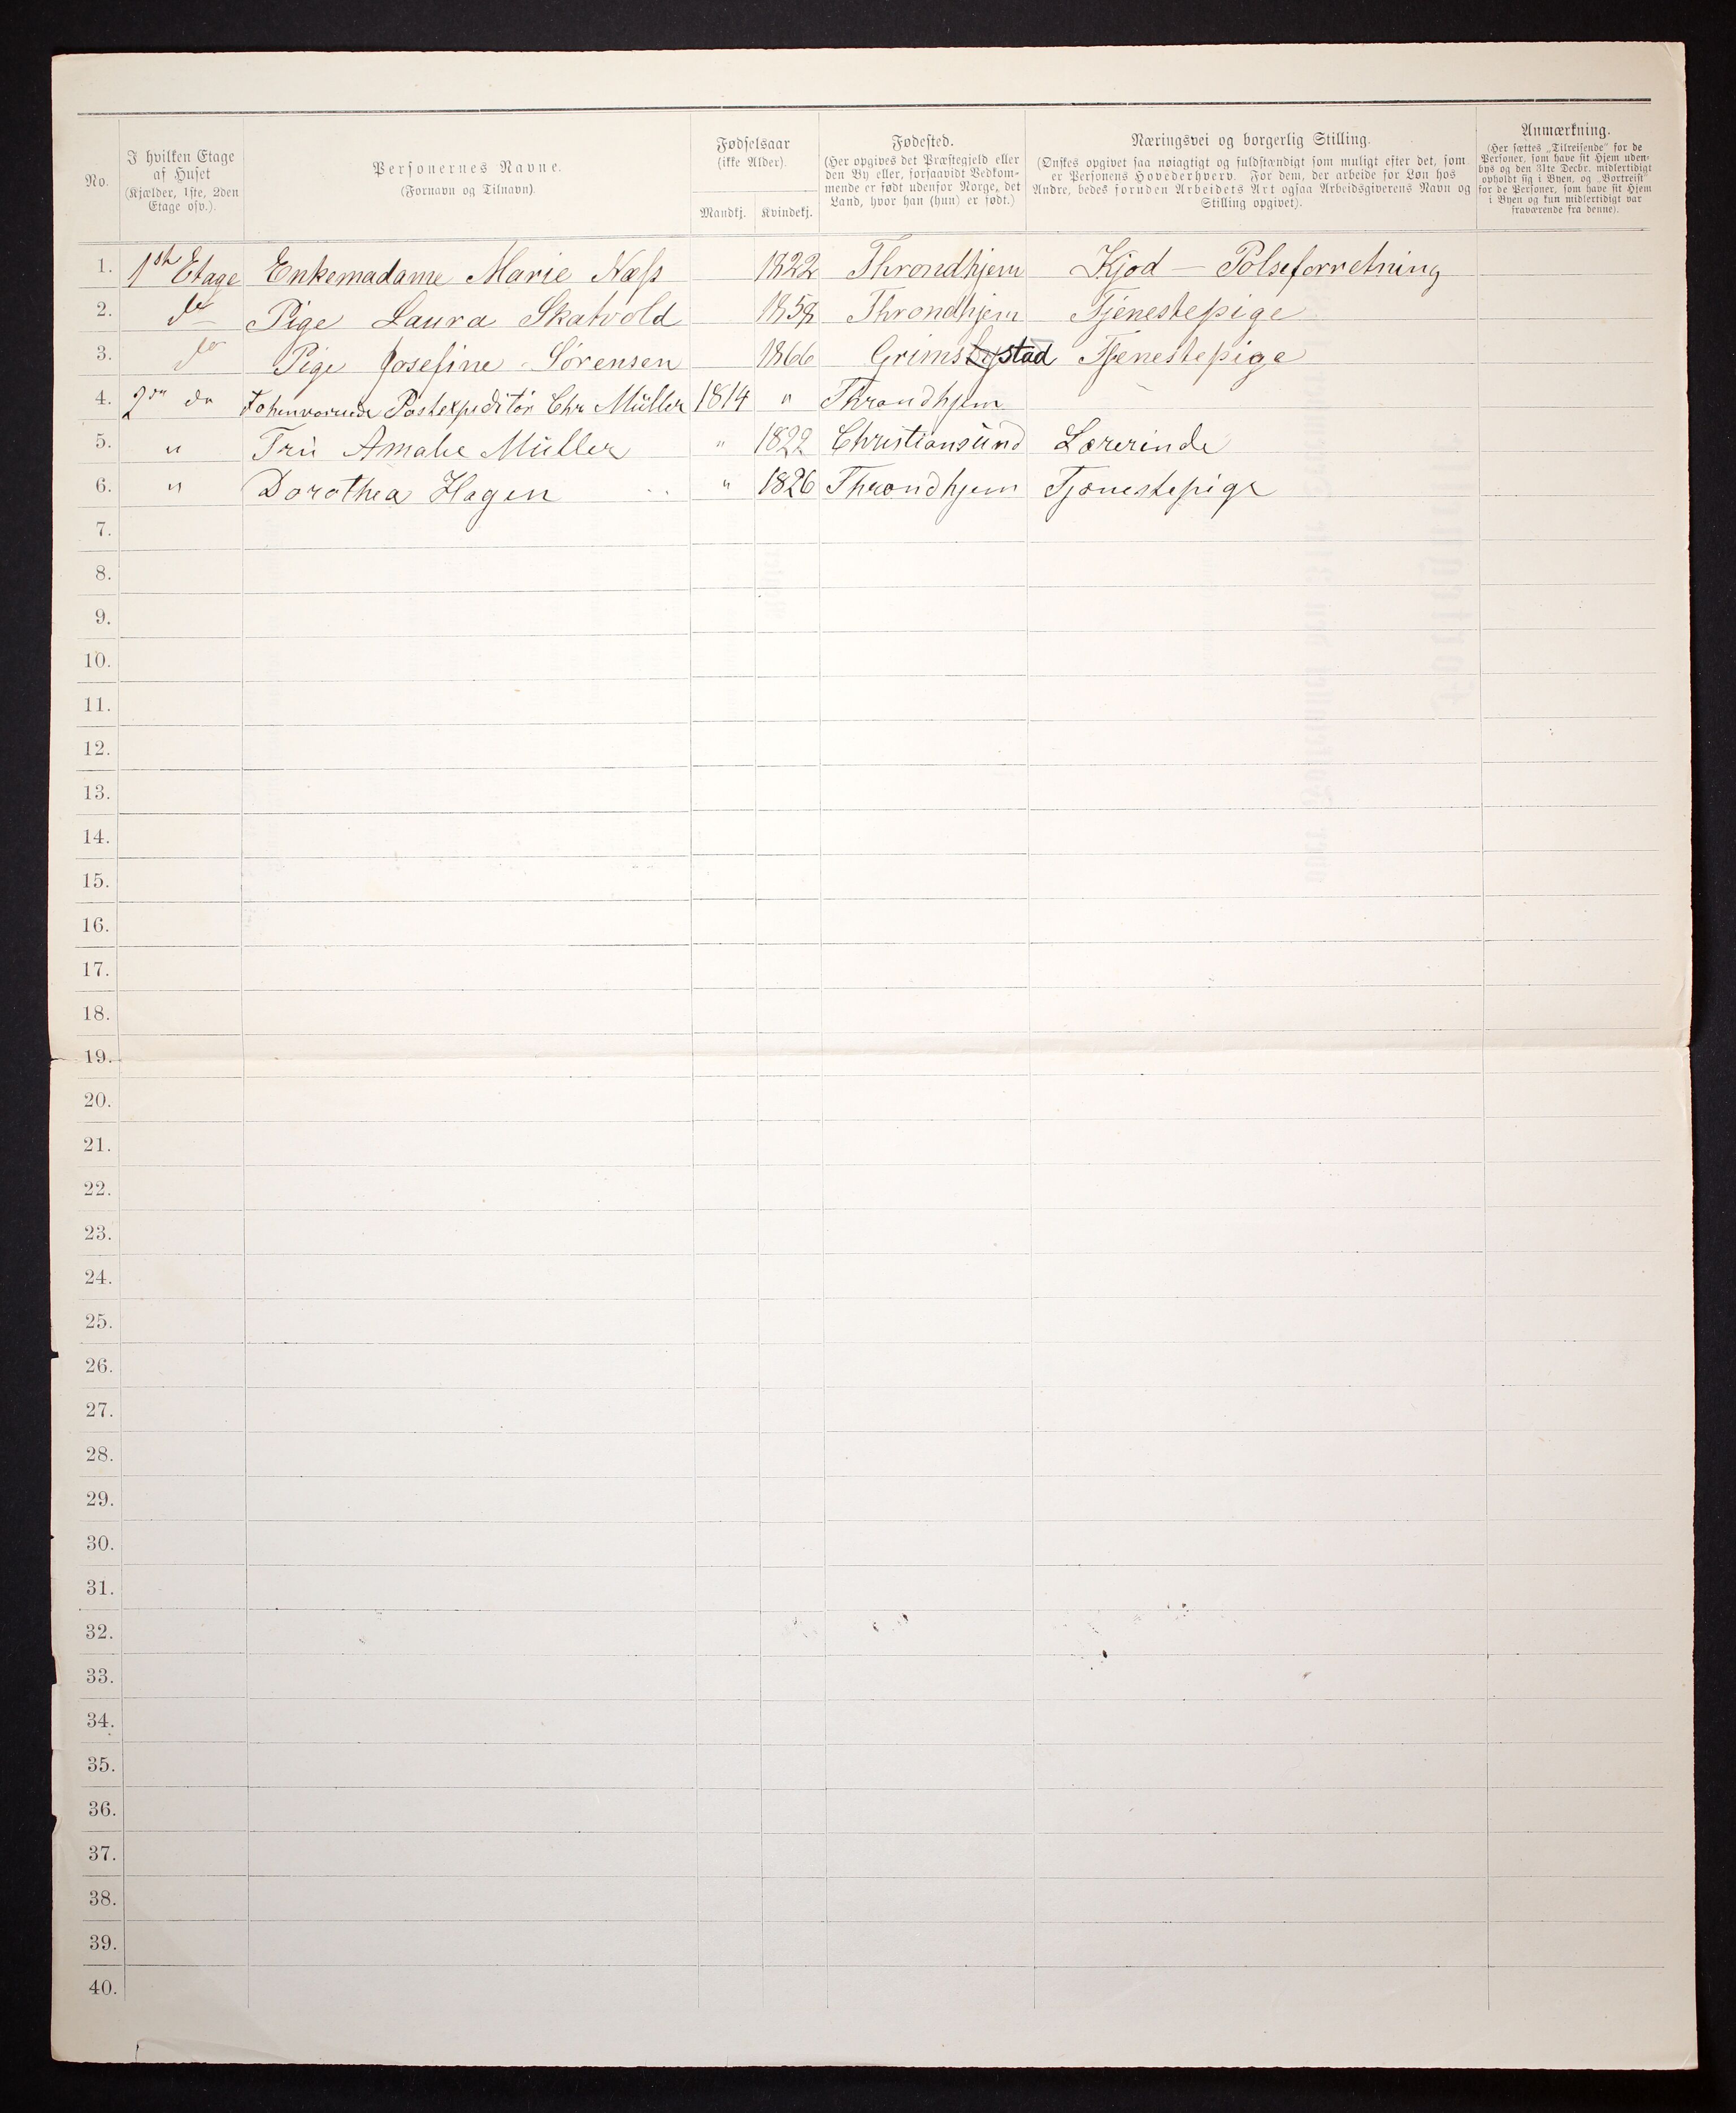 No.
I hvilken Etage
af Huset
(Kjælder, 1ste, 2den
Etage osv.).
Personernes Navne.
(Fornavn og Tilnavn).
Fødselsaar
(ikke Alder).
Mandkj. Kvindekj.
Fødested.
(Her opgives det Præstegjeld eller
den By eller, forsaavidt Vedkom-
mende er født udenfor Norge, det
Land, hvor han (hun) er født.)
Næringsvei og borgerlig Stilling.
(Ønskes opgivet saa nøiagtigt og fuldstændigt som muligt efter det, som
er Personens Hovederhverv. For dem, der arbeide for Løn hos
Andre, bedes foruden Arbeidets Art ogsaa Arbeidsgiverens Navn og
Stilling opgivet).
Anmærkning.
(Her sættes „Tilreisende" for de
Personer, som have sit Hjem uden-
bys og den 31te Decbr. midlertidigt
opholdt sig i Byen, og „Bortreist"
for de Personer, som have sit Hjem
i Byen og kun midlertidigt var
fraværende fra denne).
1. 1ste Etage Enkemadame Marie Næss 1822 Throndhjem Kjød — Pølseforretning
2. do Pige Laura Skatvold 1858 Throndhjem Tjenestepige
3. do Pige Josefine Sørensen 1866 Grimstad Tjenestepige
4. 2den do Postexpeditør Chr Müller 1814 " Throndhjem
5. " Frü Amalie Müller " 1822 Christiansünd Lærerinde
6. " Dorothea Hagen " 1826 Throndhjem Tjenestepige
7.
8.
9.
10.
11.
12.
13.
14.
15.
16.
17.
18.
19.
20.
21.
22.
23.
24.
25.
26.
27.
28.
29.
30.
31.
32.
33.
34.
35.
36.
37.
38.
39.
40.